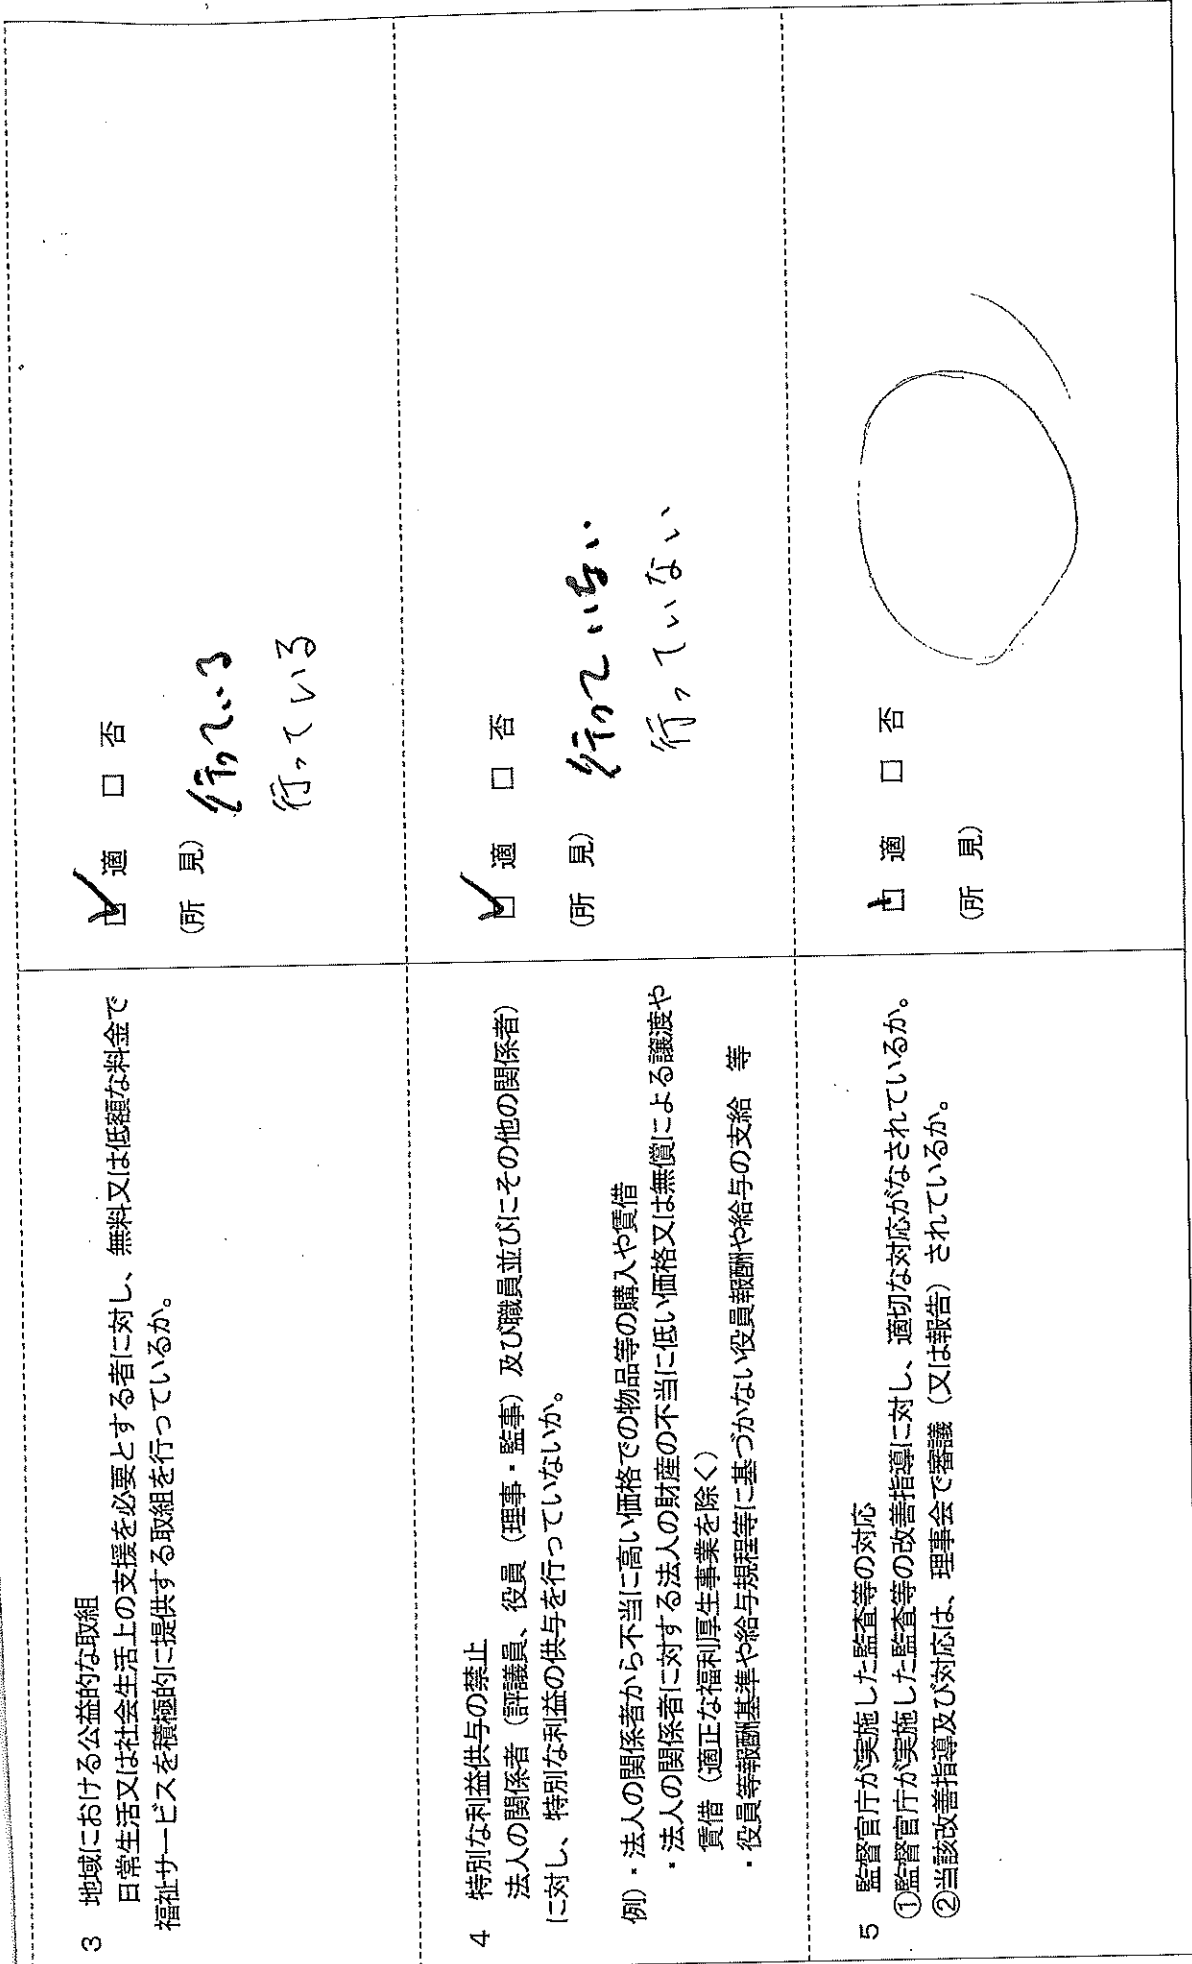 3 地域における公益的な取組
日常生活又は社会生活上の支援を必要とする者に対し、無料又は低額な料金で
福祉サービスを積極的に提供する取組を行っているか。
☑ 適 □ 否
(所 見) 行っている
行っている
4 特別な利益供与の禁止
法人の関係者（評議員、役員（理事・監事）及び職員並びにその他の関係者）
に対し、特別な利益の供与を行っていないか。
例）・法人の関係者から不当に高い価格での物品等の購入や賃借
・法人の関係者に対する法人の財産の不当に低い価格又は無償による譲渡や
賃借（適正な福利厚生事業を除く）
・役員等報酬基準や給与規程等に基づかない役員報酬や給与の支給 等
☑ 適 □ 否
(所 見) 行っていない
行っていない
5 監督官庁が実施した監査等の対応
①監督官庁が実施した監査等の改善指導に対し、適切な対応がなされているか。
②当該改善指導及び対応は、理事会で審議（又は報告）されているか。
□ 適 □ 否
(所 見)